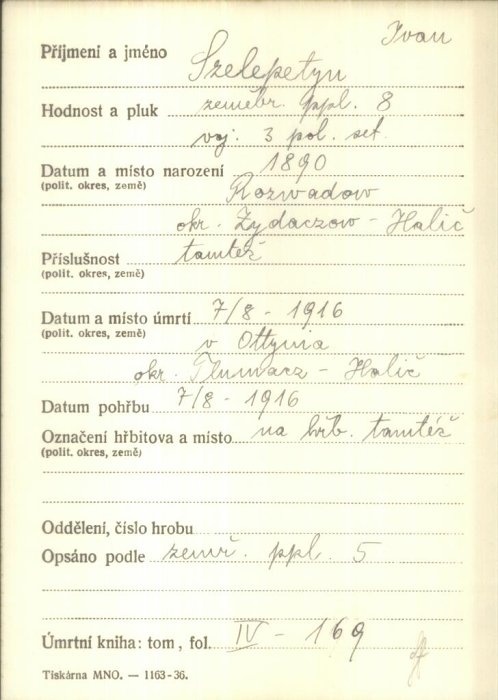 Ivan
Příjmení a jméno Szelepetyn
Hodnost a pluk zeměbr. ppl. 8
voj. 3 pol. set.
Datum a místo narození 1890
(polit. okres, země) Rozwadow
okr. Zydaczow - Halič
Příslušnost tamtéž
(polit. okres, země)
Datum a místo úmrtí 7/8 - 1916
(polit. okres, země) v Ottynia
okr. Tlumacz - Halič
Datum pohřbu 7/8 - 1916
Označení hřbitova a místo na hřb. tamtéž
(polit. okres, země)
Oddělení, číslo hrobu
Opsáno podle zemř. ppl. 5
Úmrtní kniha: tom, fol. IV - 169
Tiskárna MNO. — 1163-36.